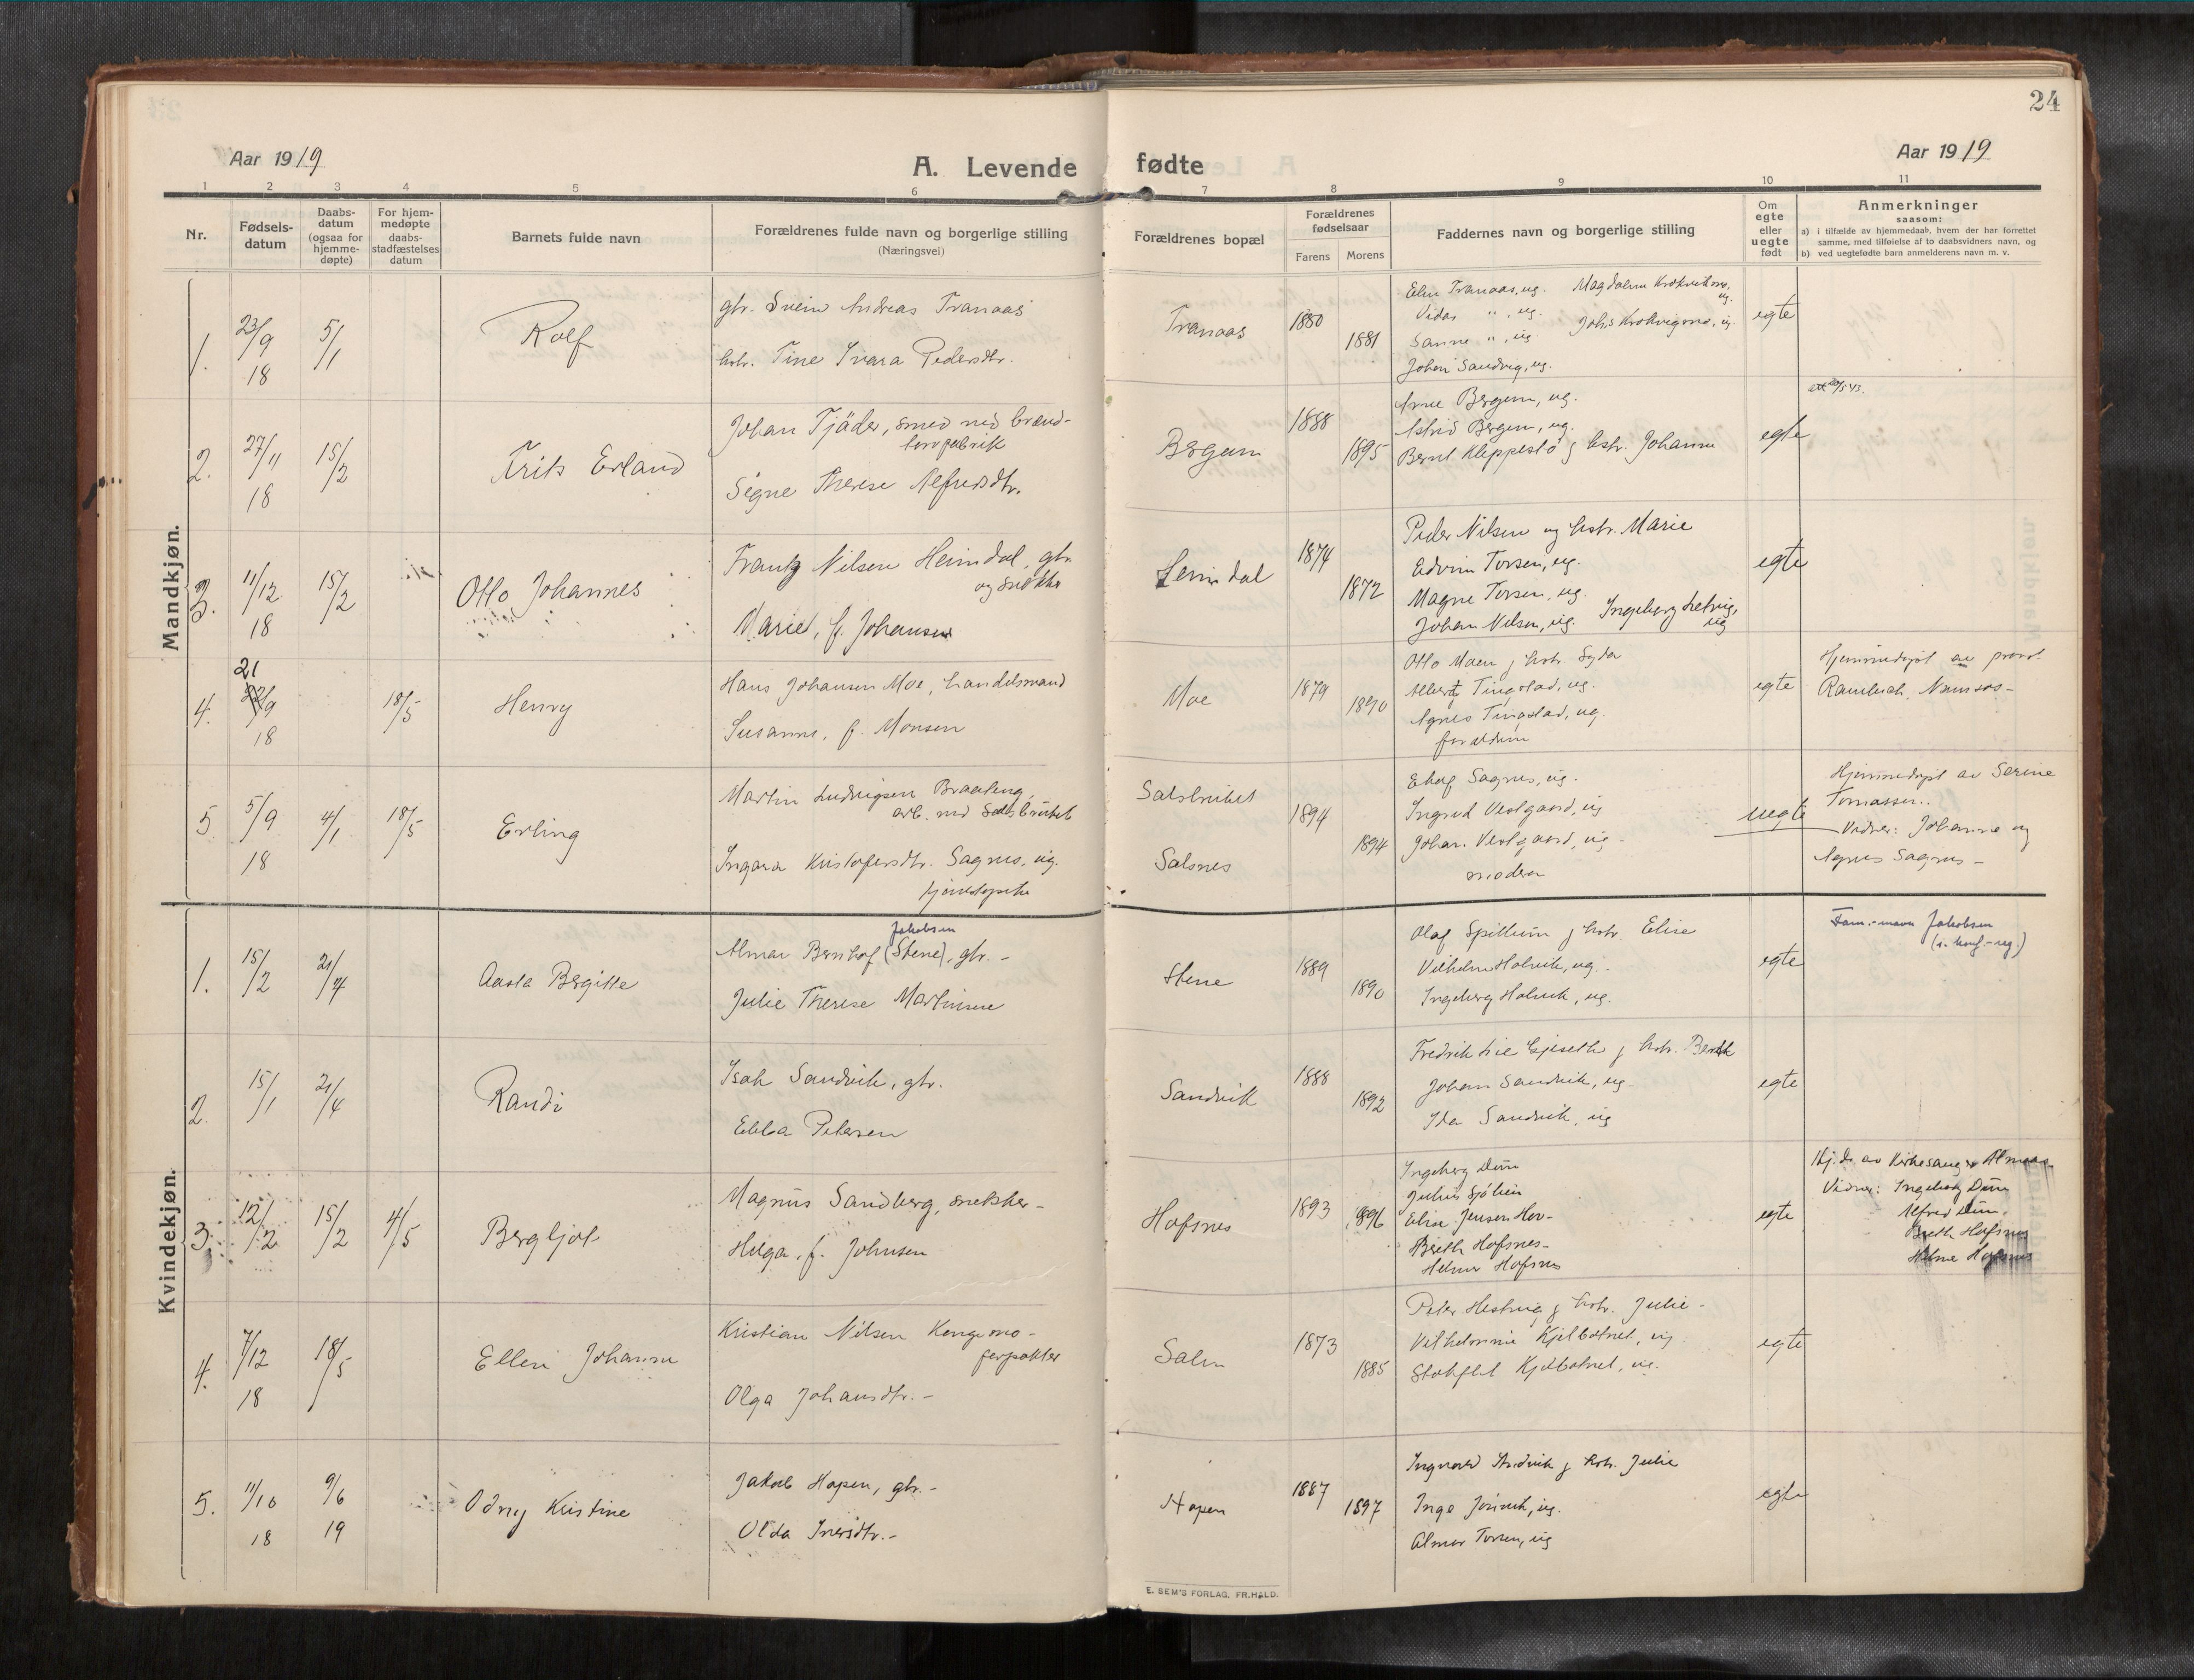 24
Aar 1919
A. Levende fødte
Aar 1919
1 2 3 4 5 6 7 8 9 10 11
Nr.
Fødsels-
datum
Daabs-
datum
(ogsaa for
hjemme-
døpte)
For hjem-
medøpte
daabs-
stadfæstelses
datum
Barnets fulde navn
Forældrenes fulde navn og borgerlige stilling
(Næringsvei)
Forældrenes bopæl
Forældrenes
fødselsaar
Farens Morens
Faddernes navn og borgerlige stilling
Om
egte
eller
uegte
født
Anmerkninger
saasom:
a) i tilfælde av hjemmedaab, hvem der har forrettet
samme, med tilføielse af to daabsvidners navn, og
b) ved uegtefødte barn anmelderens navn m. v.
Mandkjøn.
1.
23/9
18
5/1
Rolf
gbr. Svein Andreas Tranaas
hstr. Tine Ivara Pedersdtr.
Tranaas
1880
1881
Elen Tranaas, ug. Magdalena
Vidar " , ug.
Sanne " , ug
Johan Sandvig, ug.
egte
2.
27/11
18
15/2
Frits Erland
Johan Tjäder, smed ved brænd-
torvfabrik
Signe Therese Alfredsdtr.
Bergum
1888
1895
Arne Bergum, ug.
Astrid Bergum, ug.
Bernt Kleppestø g hstr. Johanne
egte
3.
11/12
18
15/2
Otto Johannes
Frantz Nilsen Heimdal, gbr.
og snekker
Marie, f. Johansen
Heimdal
1874
1872
Peder Nilsen og hstr. Marie
Edvin Torsen, ug.
Magne Torsen, ug.
Johan Nilsen, ug. Ingeborg
ug
egte
4.
21
/9
18
18/5
Henry
Hans Johansen Moe, handelsmand
Susanne, f. Monsen
Moe
1879
1890
Otto Moen g hstr. Syda
Albert Tingstad, ug.
Agnes Tingstad, ug.
forældrene
egte
Hjemmedøpt av provst
Rambech, Namsos-
5
5/9
18
4/1
18/5
Erling
Martin Ludvigsen Braateng,
arb. ved Salsbruket
Ingara Kristofersdtr. Sagnes, ug.
tjenestepike
Salsbruket
Salsnes
1894
1894
Sagnes, ug.
Ingrid Vestgaard, ug
Johan Vestgaard, ug -
moderen
uegte
Hjemmedøpt av Serine
Tomassen..
Vidner: Johanne og
Agnes Sagnes -
Kvindekjøn.
1.
15/2
21/4
Aasta Bergitte
Jakobsen
Almar Bernhof (Stene), gbr. -
Julie Therese Martinsen
Stene
1889
1890
Olaf Spillum g hstr. Elise
Vilhelm Holvik, ug. -
Ingeborg Holvik, ug.
egte
Fam.-navn Jakobsen
2.
15/1
21/4
Randi
Isak Sandvik, gbr.
Ebba Petersen
Sandvik
1888
1892
Fredrik Gjeseth g hstr. Berith
Johan Sandvik, ug -
Ida Sandvik, ug
egte
3.
12/2
15/2
4/5
Bergljot
Magnus Sandberg, snekker -
Helga, f. Johnsen
Hofsnes
1893
1896
Ingeborg Dun
Julius Sjölien
Elise Jensen Hov-
Berith Hofsnes-
Helmer Hofsnes
egte
Hj. d. av Kirkesanger Almaas
Vidner: Ingeborg Dun
Alfred Dun.
Berith Hofsnes
Hofsnes
4.
7/12
18
18/5
Ellen Johanne
Kristian Nilsen Kongsmo -
forpakter
Olga Johansdtr. -
Salen
1873
1885
Peter Hestvig g hstr. Julie -
Vilhelmine Kjelbotnet, ug.
Kjelbotnet, ug.
egte
5.
11/10
18
9/6
19
Odny Kristine
Jakob Hopen, gbr. -
Olda Iversdtr. -
Hopen
1887
1897
Ingvald g hstr. Julie
Inge, ug.
Almar Torsen, ug
egte
E. SEM'S FORLAG, FR.HALD.